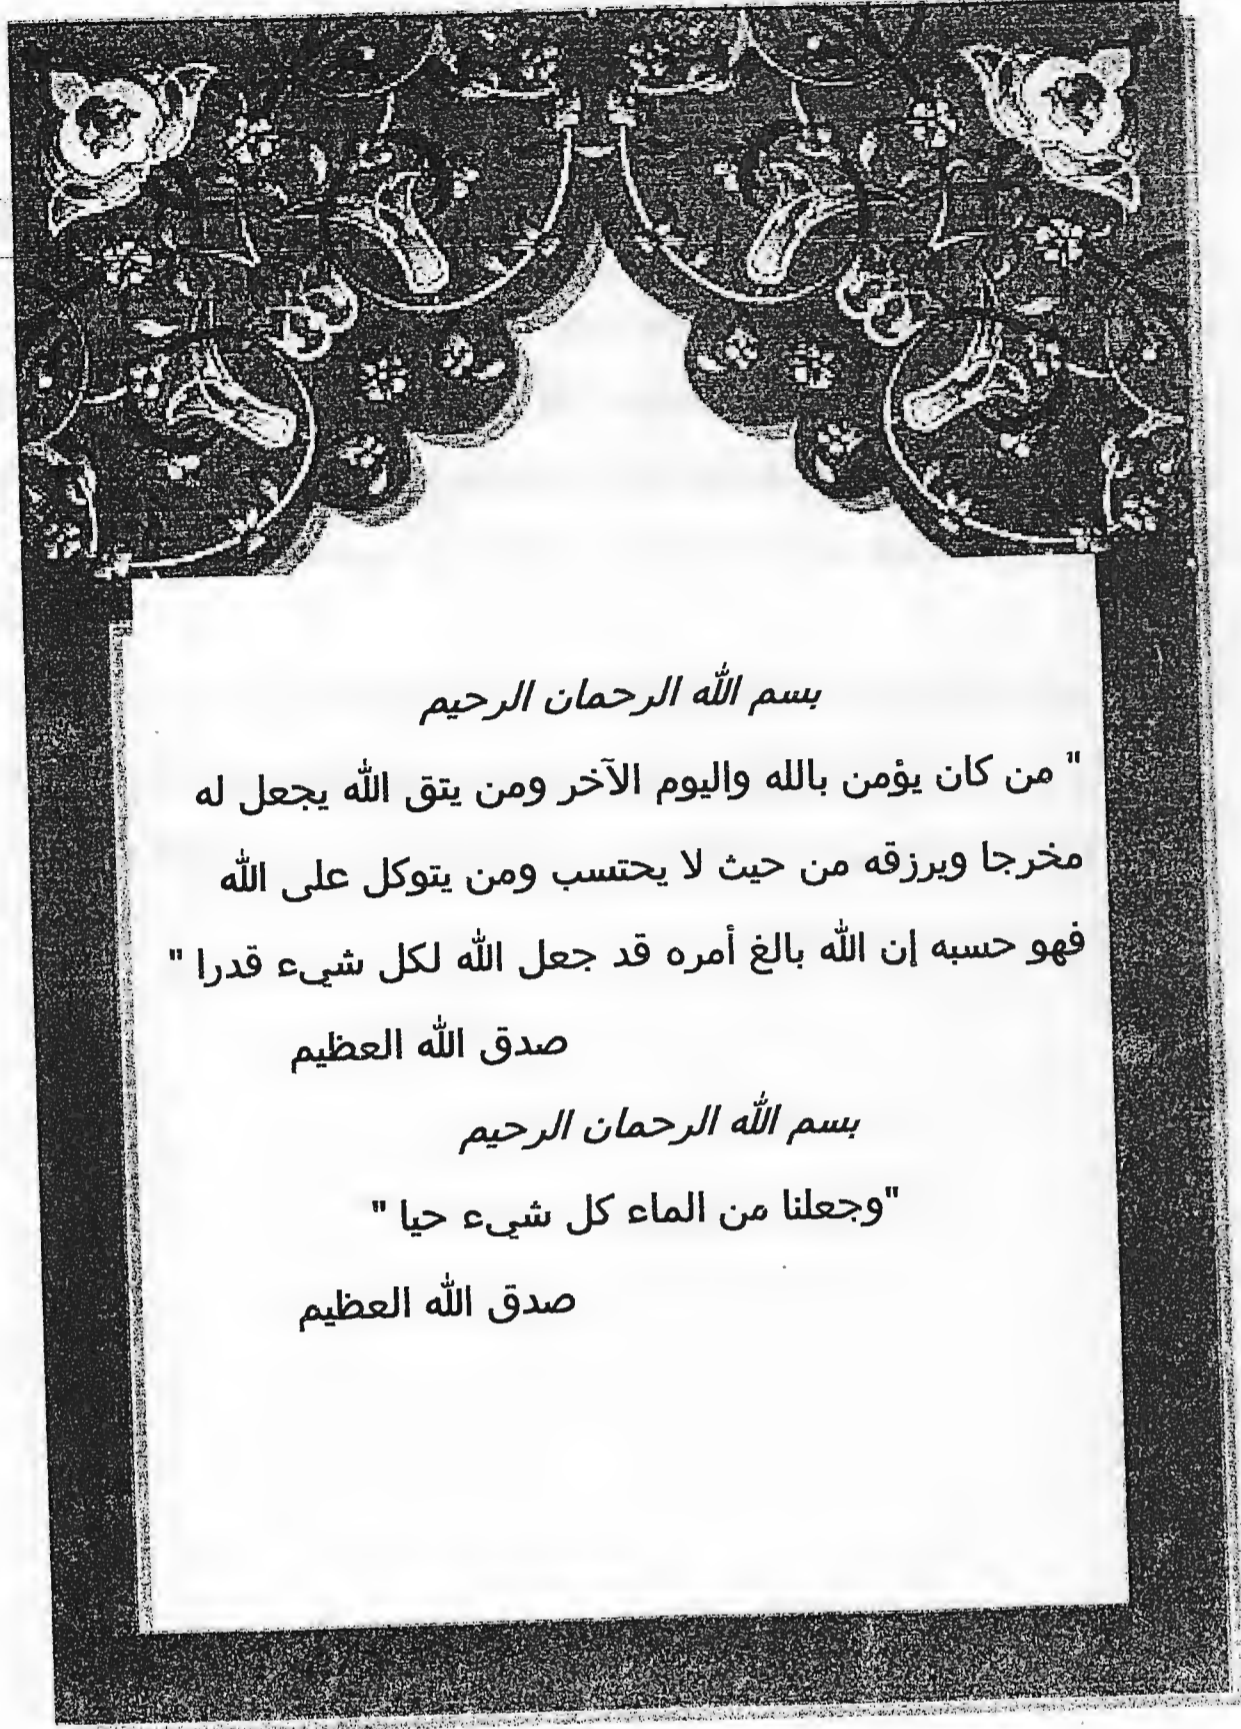 بسم الله الرحمان الرحيم
" من كان يؤمن بالله واليوم الآخر ومن يتق الله يجعل له
مخرجا ويرزقه من حيث لا يحتسب ومن يتوكل على الله
فهو حسبه إن الله بالغ أمره قد جعل الله لكل شيء قدرا "
صدق الله العظيم
بسم الله الرحمان الرحيم
"وجعلنا من الماء كل شيء حيا "
صدق الله العظيم